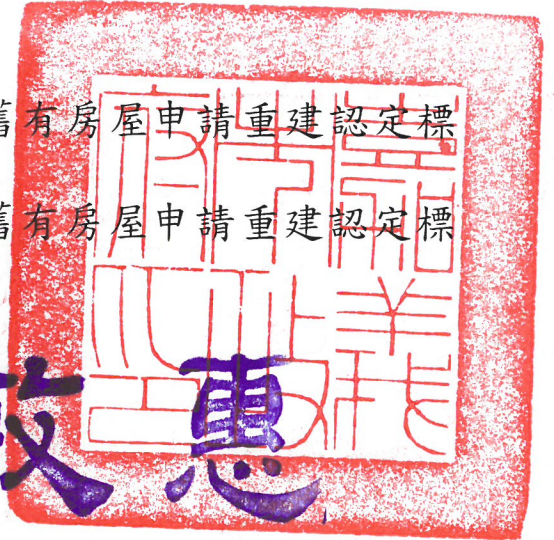 舊有房屋申請重建認定標
舊有房屋申請重建認定標
嘉義市政府之印
敏惠